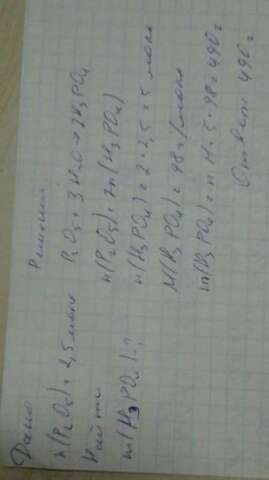 Дано
n(P₂O₅) = 2,5 моль
Найти
m(H₃PO₄) - ?
Решение
P₂O₅ + 3H₂O → 2H₃PO₄
n(P₂O₅) = 2n(H₃PO₄)
n(H₃PO₄) = 2 · 2,5 = 5 моль
M(H₃PO₄) = 98 г/моль
m(H₃PO₄) = n · M = 5 · 98 = 490 г
Ответ: 490 г